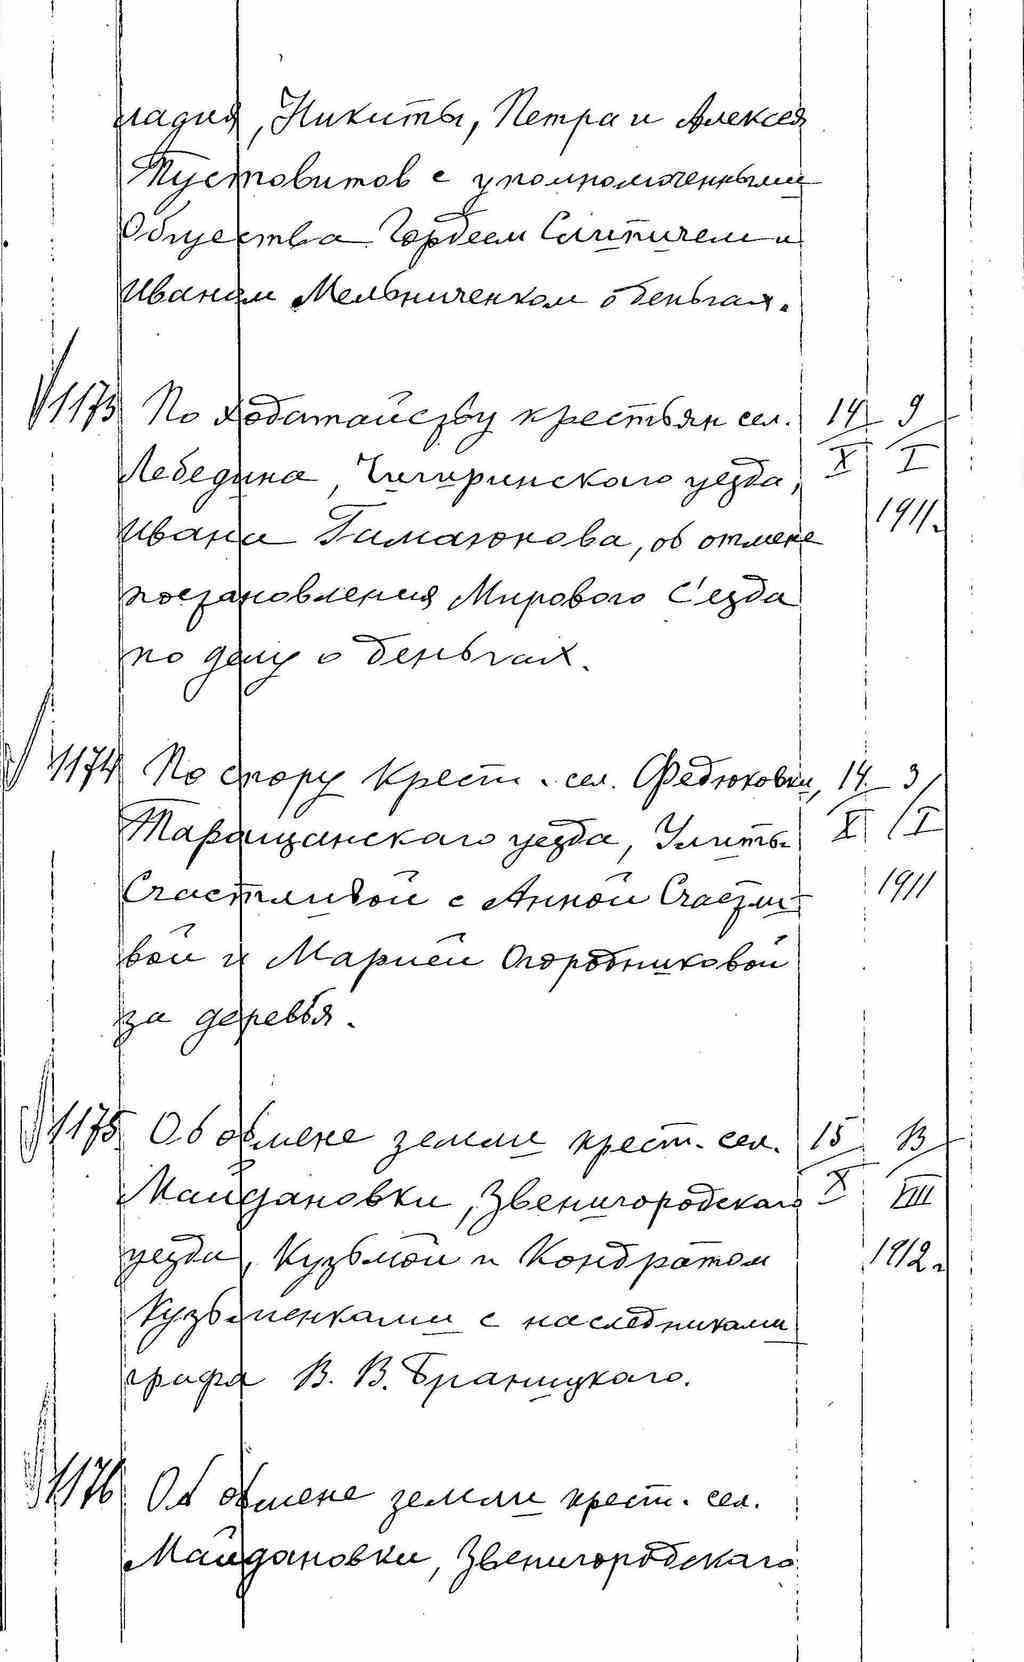 ладия, Никиты, Петра и Алексея
Пустовитов с уполномоченными
Общества Гордеем Слипичем и
Иваном Мельниченком о деньгах.
1173 По ходатайству крестьян сел. 14 9
Лебедина, Чигиринского уезда, X I
Ивана Гамаюнова, об отмене 1911.
постановления Мирового С'езда
по делу о деньгах.
1174 По спору Крест. сел. Федюковки, 14 3
Таращанскаго уезда, Улиты X I
Счастливой с Анной Счастли- 1911
вой и Марией Огородниковой
за деревья.
1175 Об обмене земли крест. сел. 15 13
Майдановки, Звенигородскаго X VIII
уезда, Кузьмой и Кондратом 1912.
Кузьменками с наследниками
графа В. В. Браницкаго.
1176 Об обмене земли крест. сел.
Майдановки, Звенигородскаго